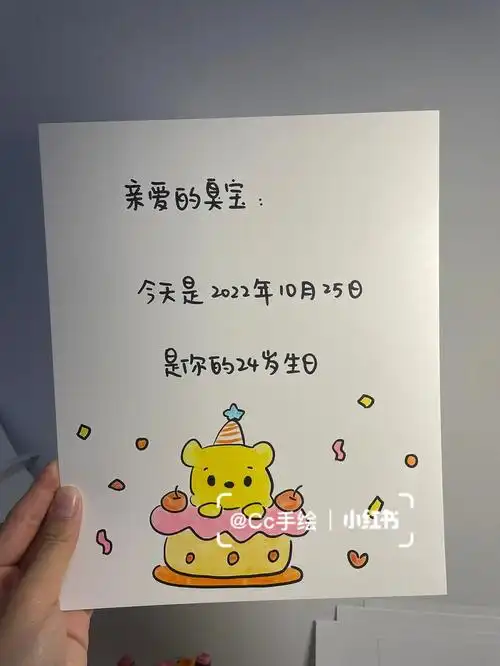 亲爱的臭宝：
今天是2022年10月25日
是你的24岁生日
@Cc手绘 | 小红书